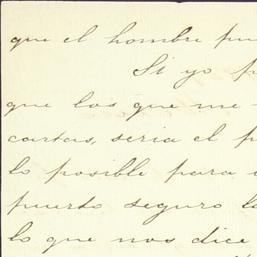 que el hombre pu
Si yo p
que los que me
cartas, seria el p
lo posible para
puerto seguro l
lo que nos dice